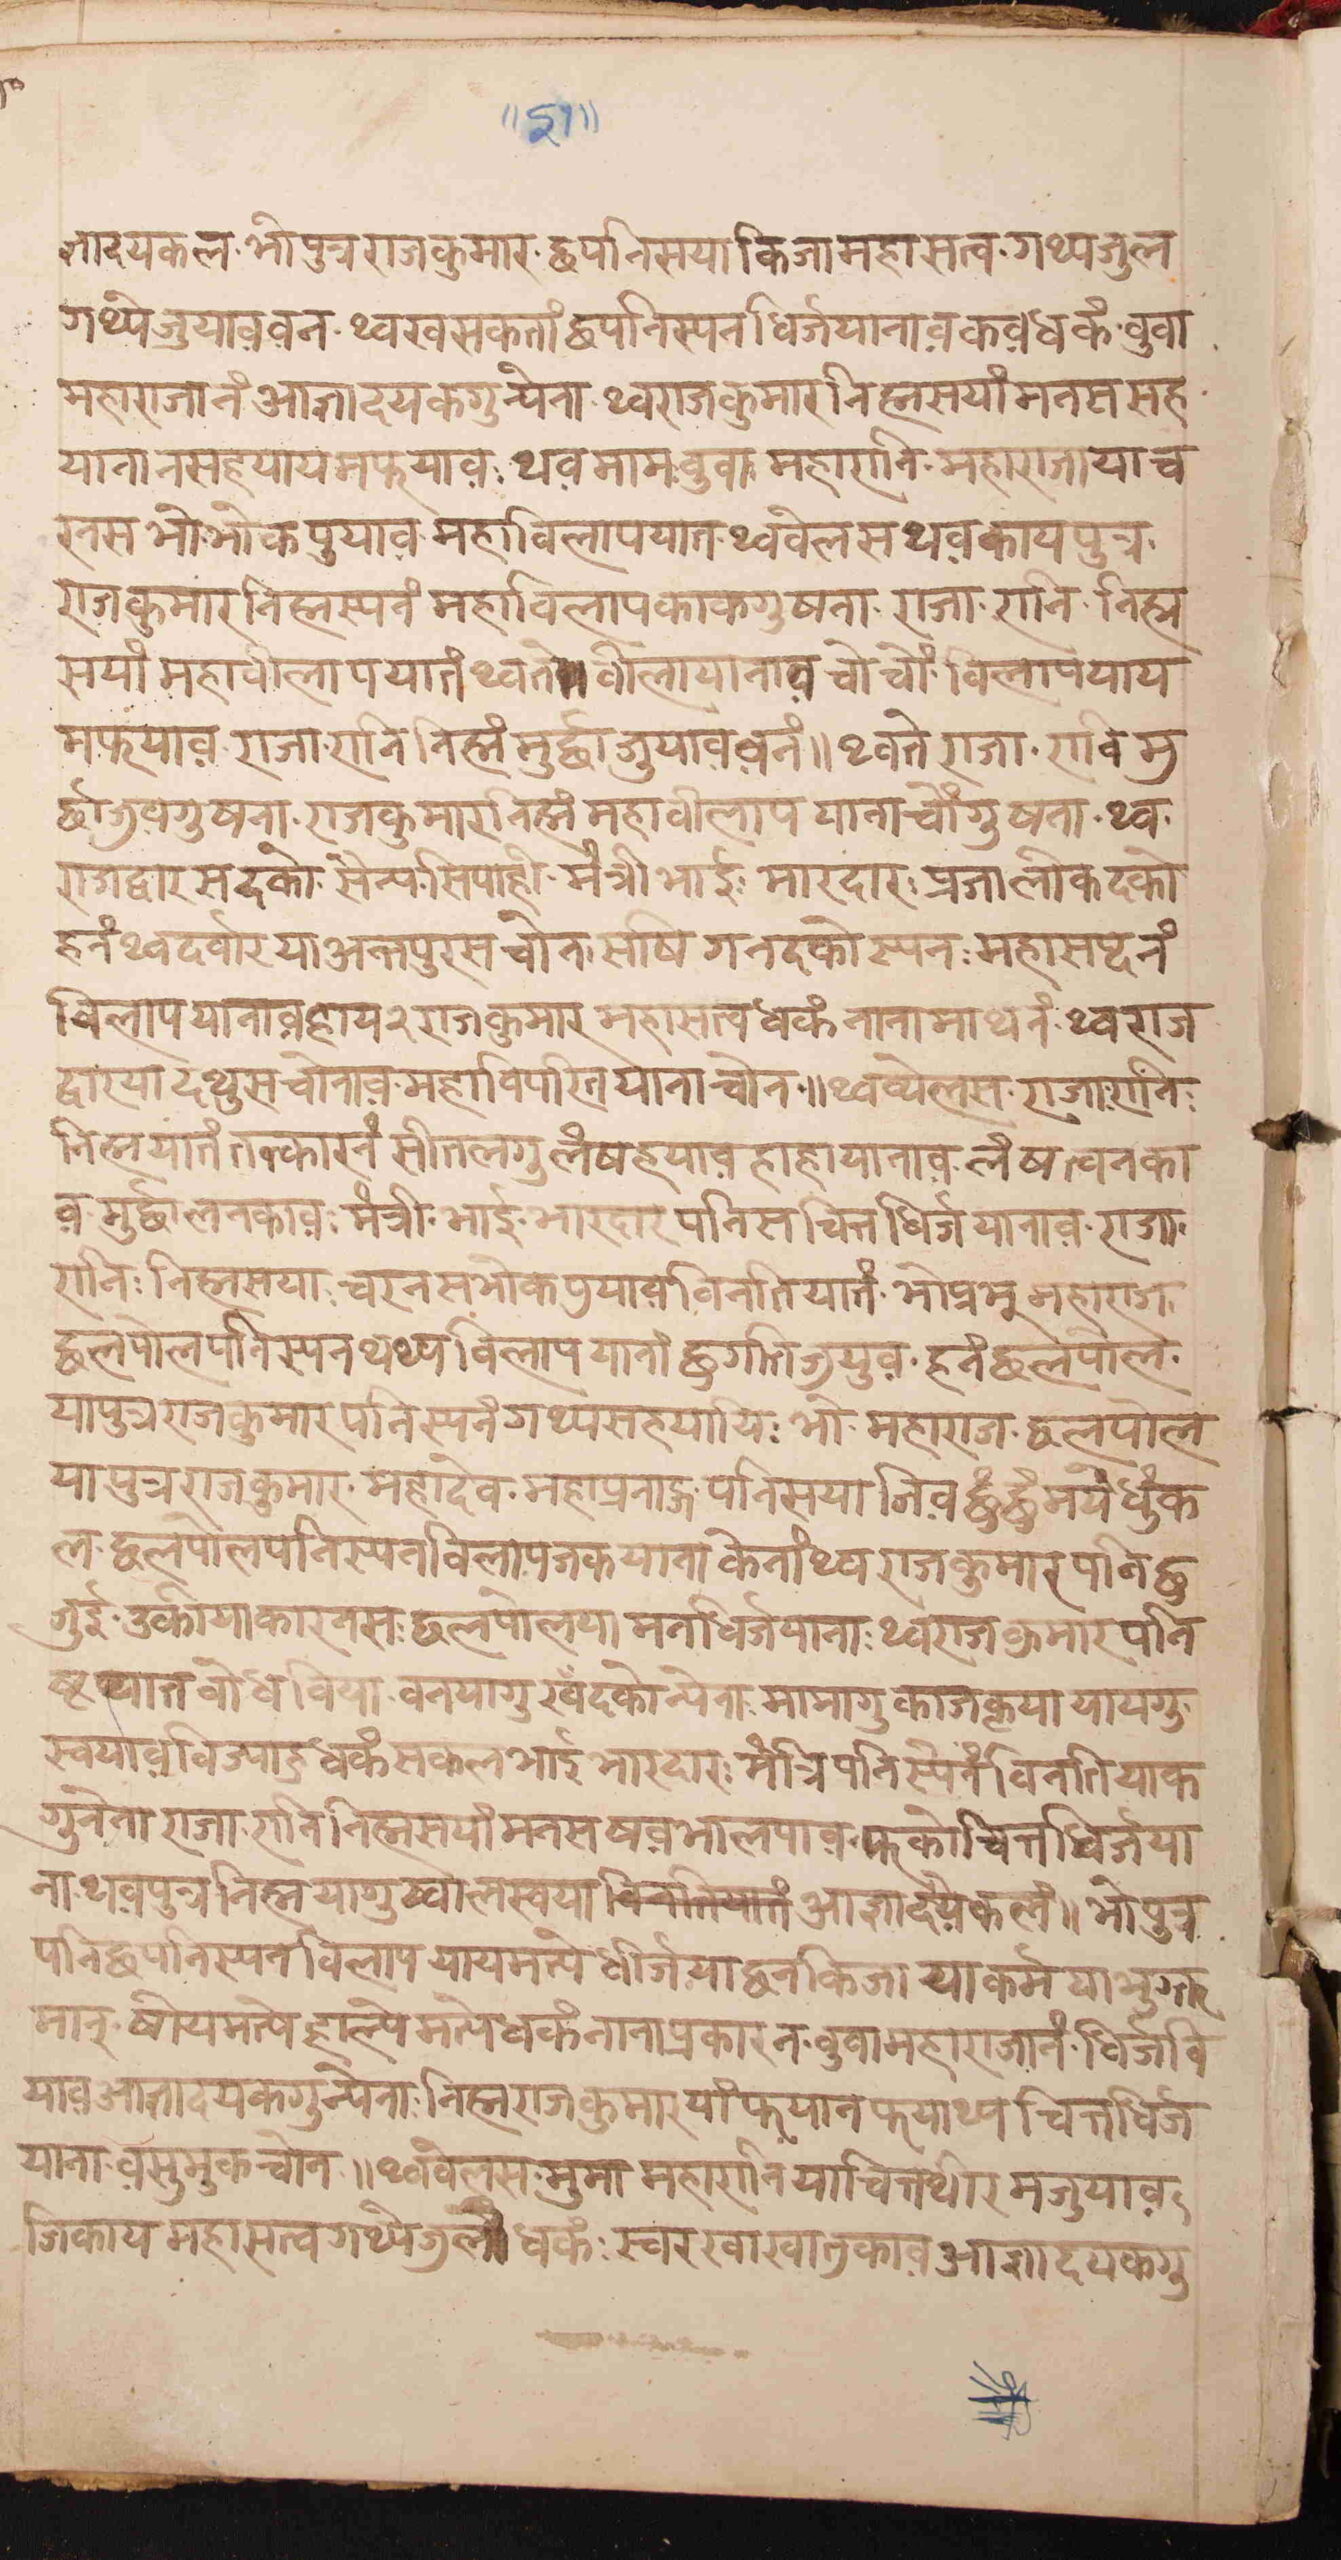 ॥३१॥
ज्ञादयकल. भोपुत्रराजकुमार. छपनिसया किजामहासत्व. गथ्यजुल
गथ्येजुयाव़व़न. थ्वखसकतां छपनिस्यनधिर्जयानाव़कव़धकं. वुवा
महाराजानं आज्ञादयकगुन्येना. थ्वराजकुमारनिह्मसयां मनससह
यानानसहयायमफयाव़: थव़मामवुवा महारानि. महाराजाया च
रनस भोभोकपुयाव़ महाविलापयात. थ्ववेलस थव़कायपुत्र.
राजकुमारनिह्मस्यनं महाविलापकाकगुषना. राजा. रानि. निह्म
सयां महावीलापयातं थ्वते वीलायानाव़ चोचों विलापयाय
मफयाव़ राजा रानि निह्मं मुर्छाजुयाव़व़नं॥ थ्वते राजा. रानि मु
र्छाजुव़गुषना. राजकुमारनिह्मं महावीलाप यानाचोंगुषना. थ्व.
राजद्वारसदको. सैन्य. सिपाही. मंत्री भाई: भारदार: प्रजालोकदको
हनं थ्वदर्वारया अन्तपुरसचोन. सषिगनदकोस्यन: महासष्दनं
विलापयानाव़ हाय२ राजकुमार महासत्वधकं नानामाथनं. थ्वराज
द्वारया दथुसचोनाव़. महाविपरितयानाचोन.॥ थ्वव्येलस. राजारानि:
निह्मयातं तत्कारनं सीतलगुलंषहयाव़ हाहायानाव़. लंषत्वनका
व़ मुर्छालनकाव़: मंत्री. भाई. भारदारपनिसचित्तधिर्जयानाव़. राजा.
रानि: निह्मसया. चरनसभोकपुयाव़विनतियातं. भोप्रभु महाराज
छलपोलपनिस्यन थथ्यविलापयाना छुगतिजुयुव़. हनं छलपोल.
यापुत्रराजकुमारपनिस्यनं गथ्यसहयायि: भो महाराज. छलपोल
या पुत्र राजकुमार. महादेव. महाप्रनाद. पनिसया जिव़ छुंछुंमयेधुंक
ल. छलपोलपनिस्यनविलापजकयाना केनां थ्व राजकुमारपनि छु
जुई. उकियाकारनस: छलपोलया मनधिर्जयाना: थ्वराजकुमारपनि
यात वोधविया. वनयागु खंदकोन्येना. मामागुकाजकृया यायगु.
स्वयाव़विज्याहुधकं सकलभाई भारदार: मंत्रिपनिस्येनं विनतियाक
गुनेना राजा रानि निह्मसयां मनस षव़भालपाव़. फकोचित्तधिर्जया
ना. थव़पुत्रनिह्मयागु ख्वालस्वया विनतियातं आज्ञादयेकलं॥ भोपुत्र
पनि छपनिस्यनविलापयायमत्ये धीर्जया छनकिजा याकर्मयाभुग्त
मानु. षोयमत्ये हाल्येमत्येधकं नानाप्रकारन. वुवामहाराजानं. धिर्जवि
याव़ आज्ञादयकगुन्येना: निह्मराजकुमारयां फयानफयाथ्य चित्तधिर्ज
याना व़सुमुकचोन.॥ थ्ववेलस. मुमा महारानियाचित्तथीरमजुयाव़.
जिकाय महासत्व गथ्येजुलधकं: स्वरखाखातुकाव़ आज्ञादयकगु